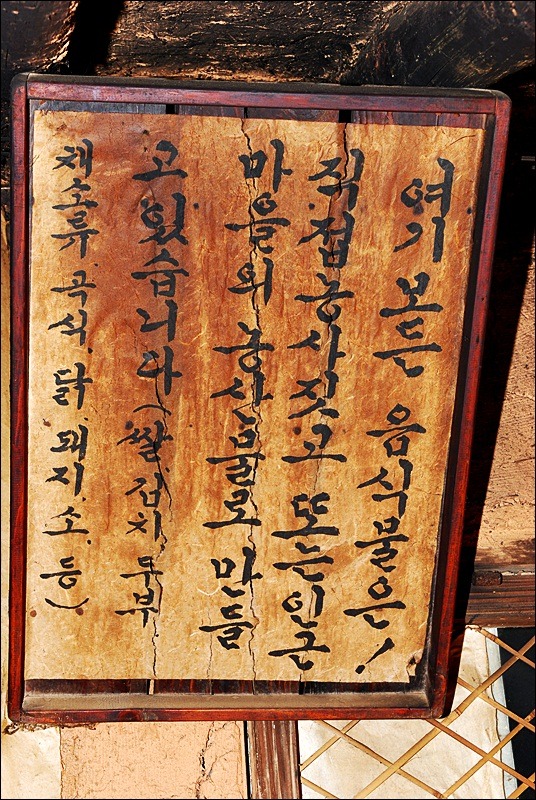 여기 모든 음식물은!
직접농사짓고 또는 인근
마을의 농산물로 만들
고 있습니다 (쌀 김치 두부
채소류. 곡식. 닭. 돼지. 소. 등)